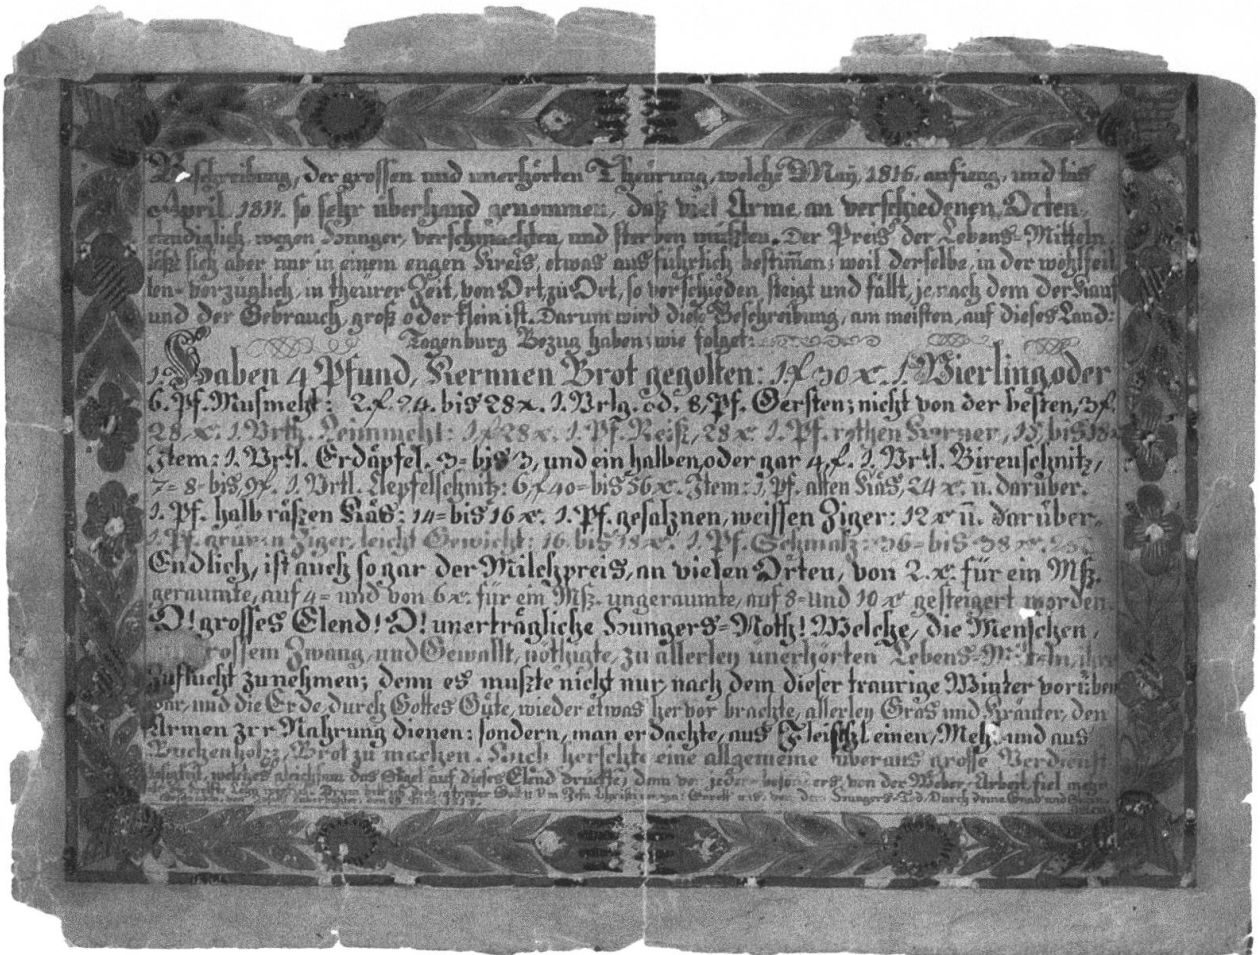 Beschreibung, der grossen und unerhörten Theürung, welche May, 1816, anfieng, und bis
April, 1817, so sehr überhand genommen, daß viel Arme, an verschiedenen, Orten,
elendiglich, wegen Hunger, verschmachten, und sterben müßten. Der Preis der Lebens-Mitteln
läßt sich aber nur in einem engen Kreis, etwas ausführlich bestim̄en; weil derselbe, in der wohlfeil
len- vorzuglich, in theürer Zeit, von Ort, zu Ort, so verschieden steigt und fallt, je nach dem der Kauf
und der Gebrauch, groß oder klein ist. Darum wird diese Beschreibung, am meisten, auf dieses Land:
Togenburg Bezug haben; wie folget:
Haben 4 Pfund, Kernnen Brot gegolten: 1 f 30 x. 1. Vierling, oder
6. Pf. Musmehl: 2. f. 24. bis 28 x. 1. Vrlg. od. 8, Pf. Gersten; nicht von der besten, 3 f.
28, x. 1. Vrtl. 1 f 28 x. 1. Pf. Reiß, 28 x. 1. Pf. rothen
Item: 1. Vrtl. Erdäpfel. 3= bis 3, und ein halben, oder gar 4, f. 1. Vrtl. Birenschnitz,
7= 8= bis, 9 f. 1. Vrtl. Aepfelschnitz: 6, f 40= bis 56 x. Item: 1, Pf. alten Käs, 24 x. u. darüber.
1. Pf. halb räßen Käs: 14= bis 16 x. 1. Pf. gesalznen, weissen Ziger: 12 x ū. darüber-
1. Pf. grünen Ziger, leicht Gewicht: 16. bis 18 x. 1. Pf. Schmalz: 36= bis= 38 x.
Endlich, ist auch so gar der Milchpreis, an vielen Orten, von 2. x. für ein Mß.
geraumte, auf 4= und von 6 x. für ein Mß. ungeraumte, auf 8= und 10 x gesteigert worden.
O! grosses Elend! O! unerträgliche Hungers=Noth! Welche, die Menschen,
grossem Zwang, und Gewallt, nöthigte, zu allerley unerhörten Lebens= ihre
Zuflucht zu nehmen; denn es mußte nicht nur, nach dem dieser traurige Winter vorüber
war, und die Erde, durch Gottes Güte, wieder etwas hervor brachte, allerley Gras und Kräuter, den
Armen zrr Nahrung dienen: sondern, man erdachte, aus Fleisch, leinen, Mehl und aus
Buchenholz, Brot zu machen. Auch herschte eine allgemeine überaus grosse Verdienst
losigkeit, welches gleichsam das Sigel auf dieses Elend druckte; denn von jeder besonders, von der Weber, Arbeit fiel mehr